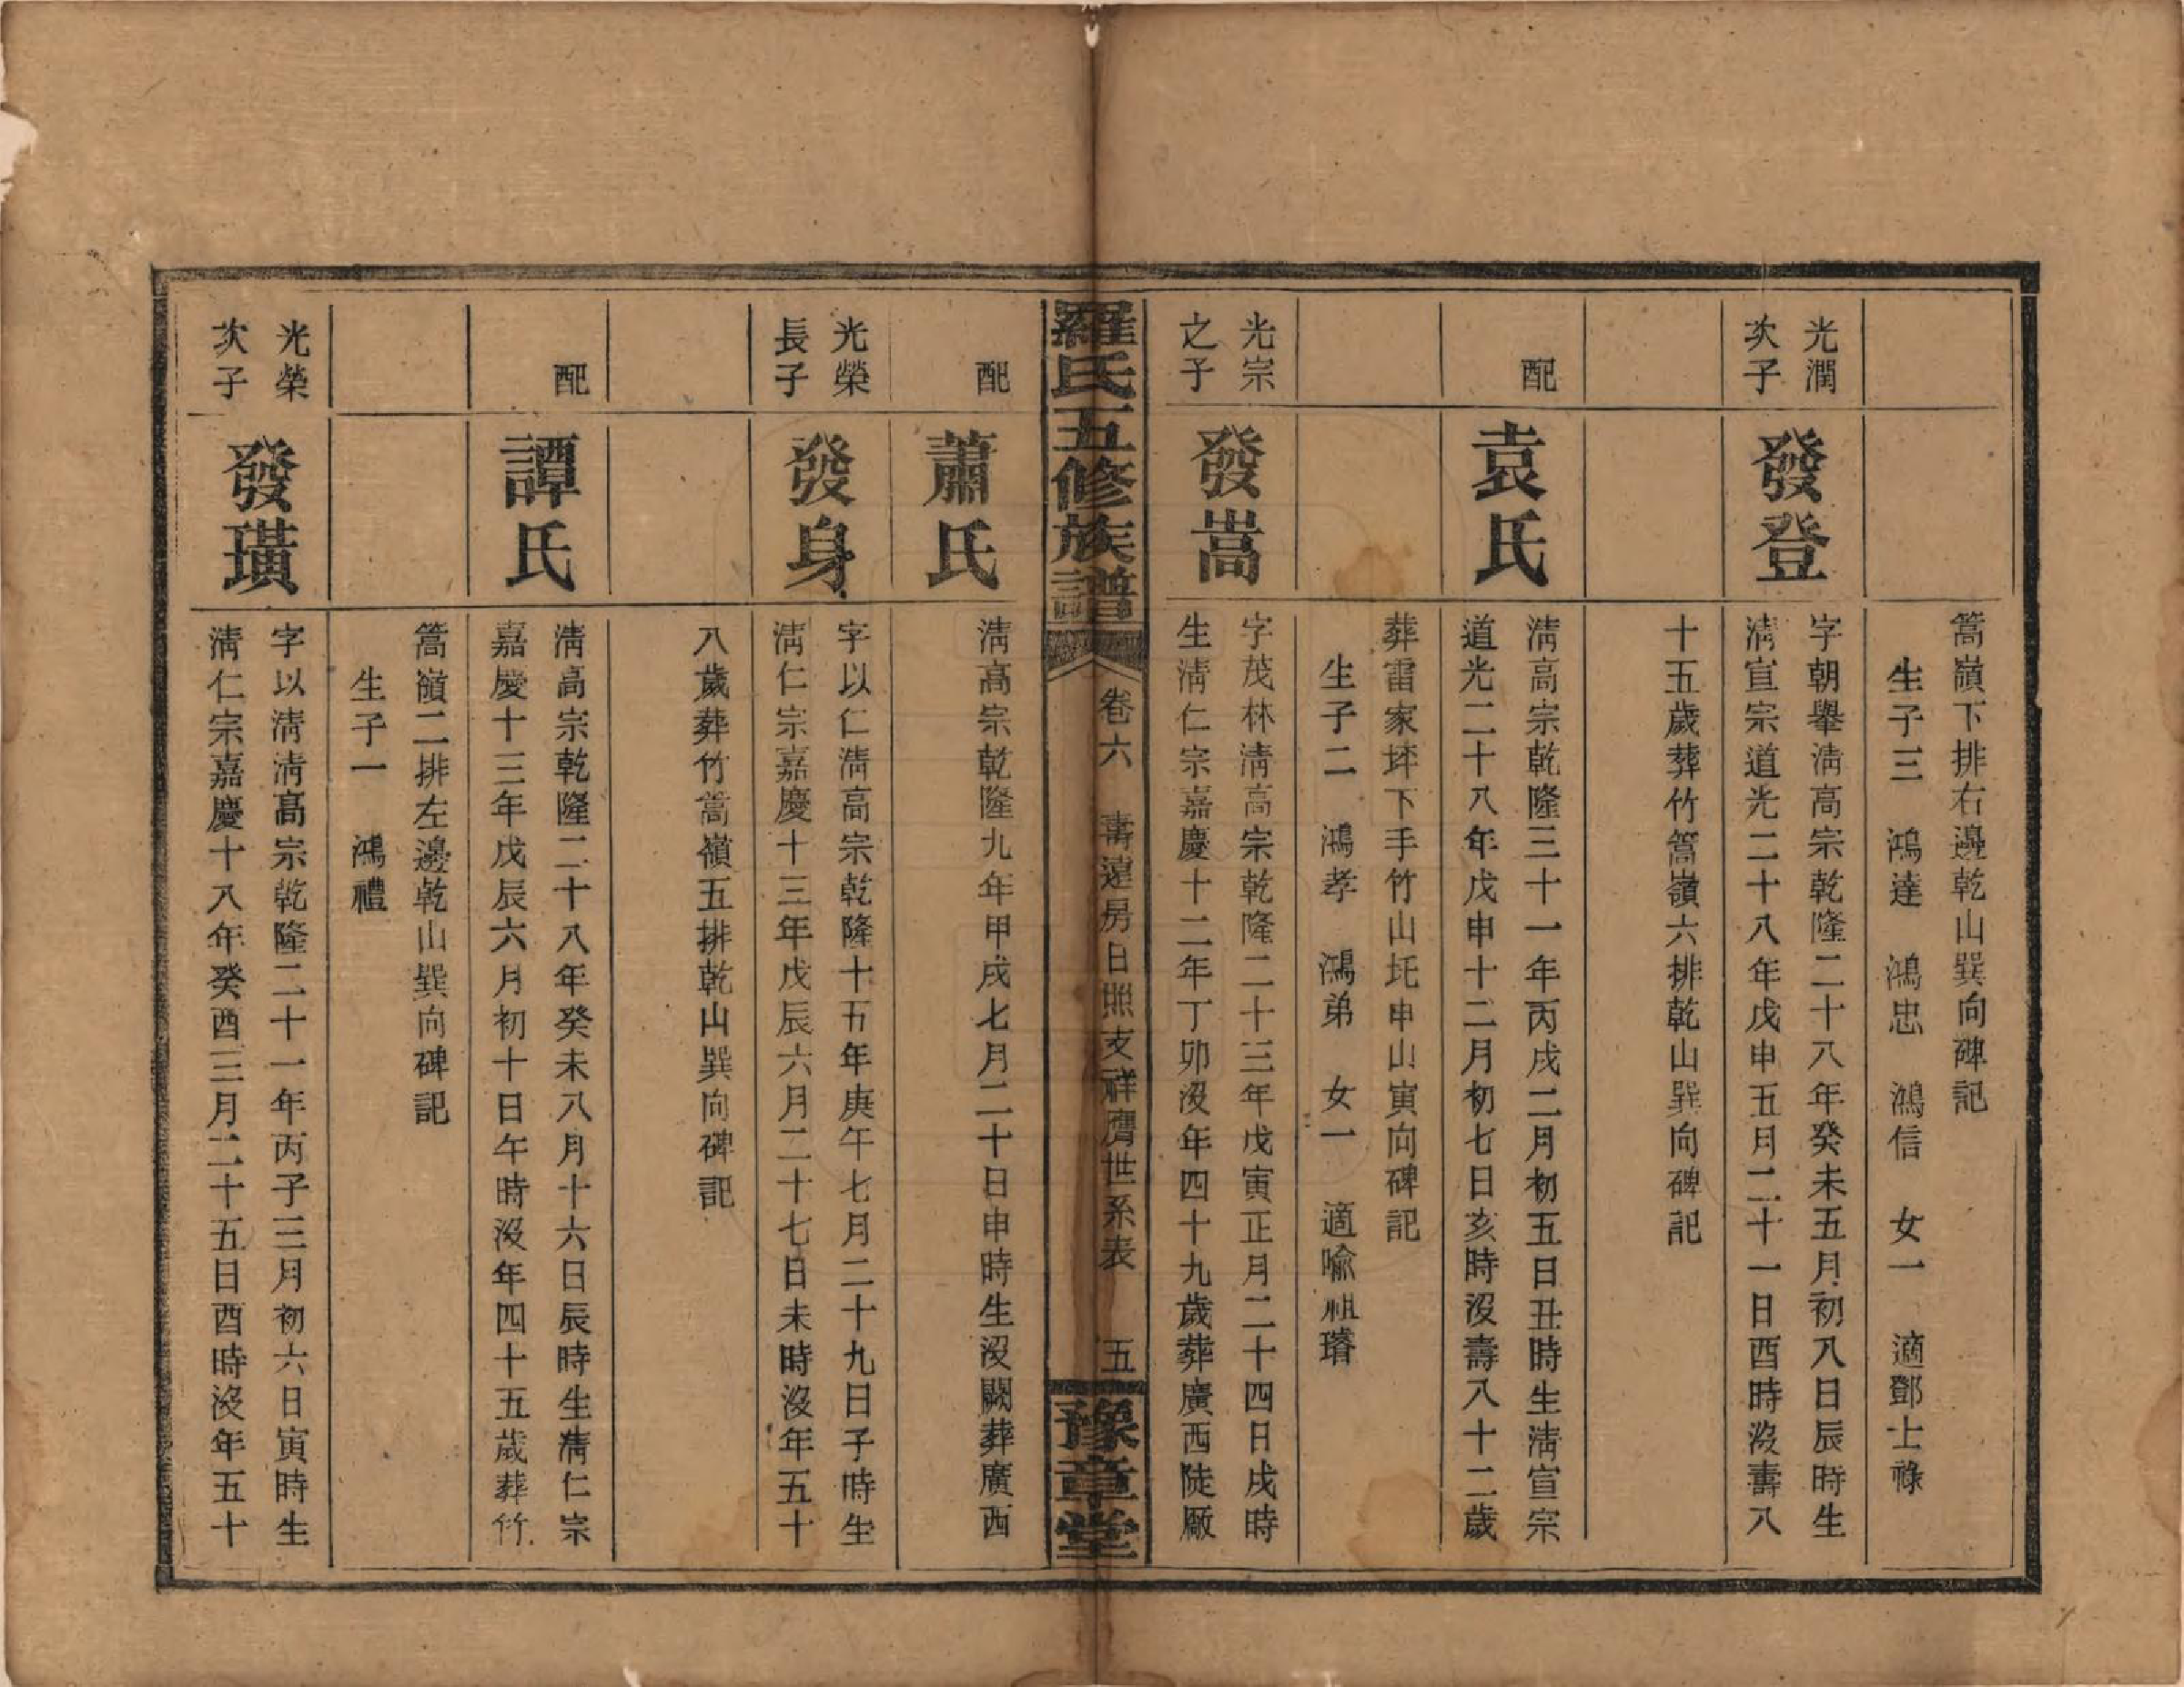 篙嶺下排右邊乾山巽向碑記
生子三 鴻達 鴻忠 鴻信 女一 適鄧士祿
光潤
次子
發登
字朝舉淸高宗乾隆二十八年癸未五月初八日辰時生
淸宣宗道光二十八年戊申五月二十一日酉時沒壽八
十五歲葬竹篙嶺六排乾山巽向碑記
配
袁氏
淸高宗乾隆三十一年丙戌二月初五日丑時生淸宣宗
道光二十八年戊申十二月初七日亥時沒壽八十二歲
葬雷家坪下手竹山圫申山寅向碑記
生子二 鴻孝 鴻弟 女一 適喩祖璿
光宗
之子
發嵩
字茂林淸高宗乾隆二十三年戊寅正月二十四日戌時
生淸仁宗嘉慶十二年丁卯沒年四十九歲葬廣西陡厰
羅氏五修族譜
卷六 壽遠房日照支祥膺世系表 五
豫章堂
配
蕭氏
淸高宗乾隆九年甲戌七月二十日申時生沒闕葬廣西
光榮
長子
發身
字以仁淸高宗乾隆十五年庚午七月二十九日子時生
淸仁宗嘉慶十三年戊辰六月二十七日未時沒年五十
八歲葬竹篙嶺五排乾山巽向碑記
配
譚氏
淸高宗乾隆二十八年癸未八月十六日辰時生淸仁宗
嘉慶十三年戊辰六月初十日午時沒年四十五歲葬竹
篙嶺二排左邊乾山巽向碑記
生子一 鴻禮
光榮
次子
發璜
字以淸淸高宗乾隆二十一年丙子三月初六日寅時生
淸仁宗嘉慶十八年癸酉三月二十五日酉時沒年五十